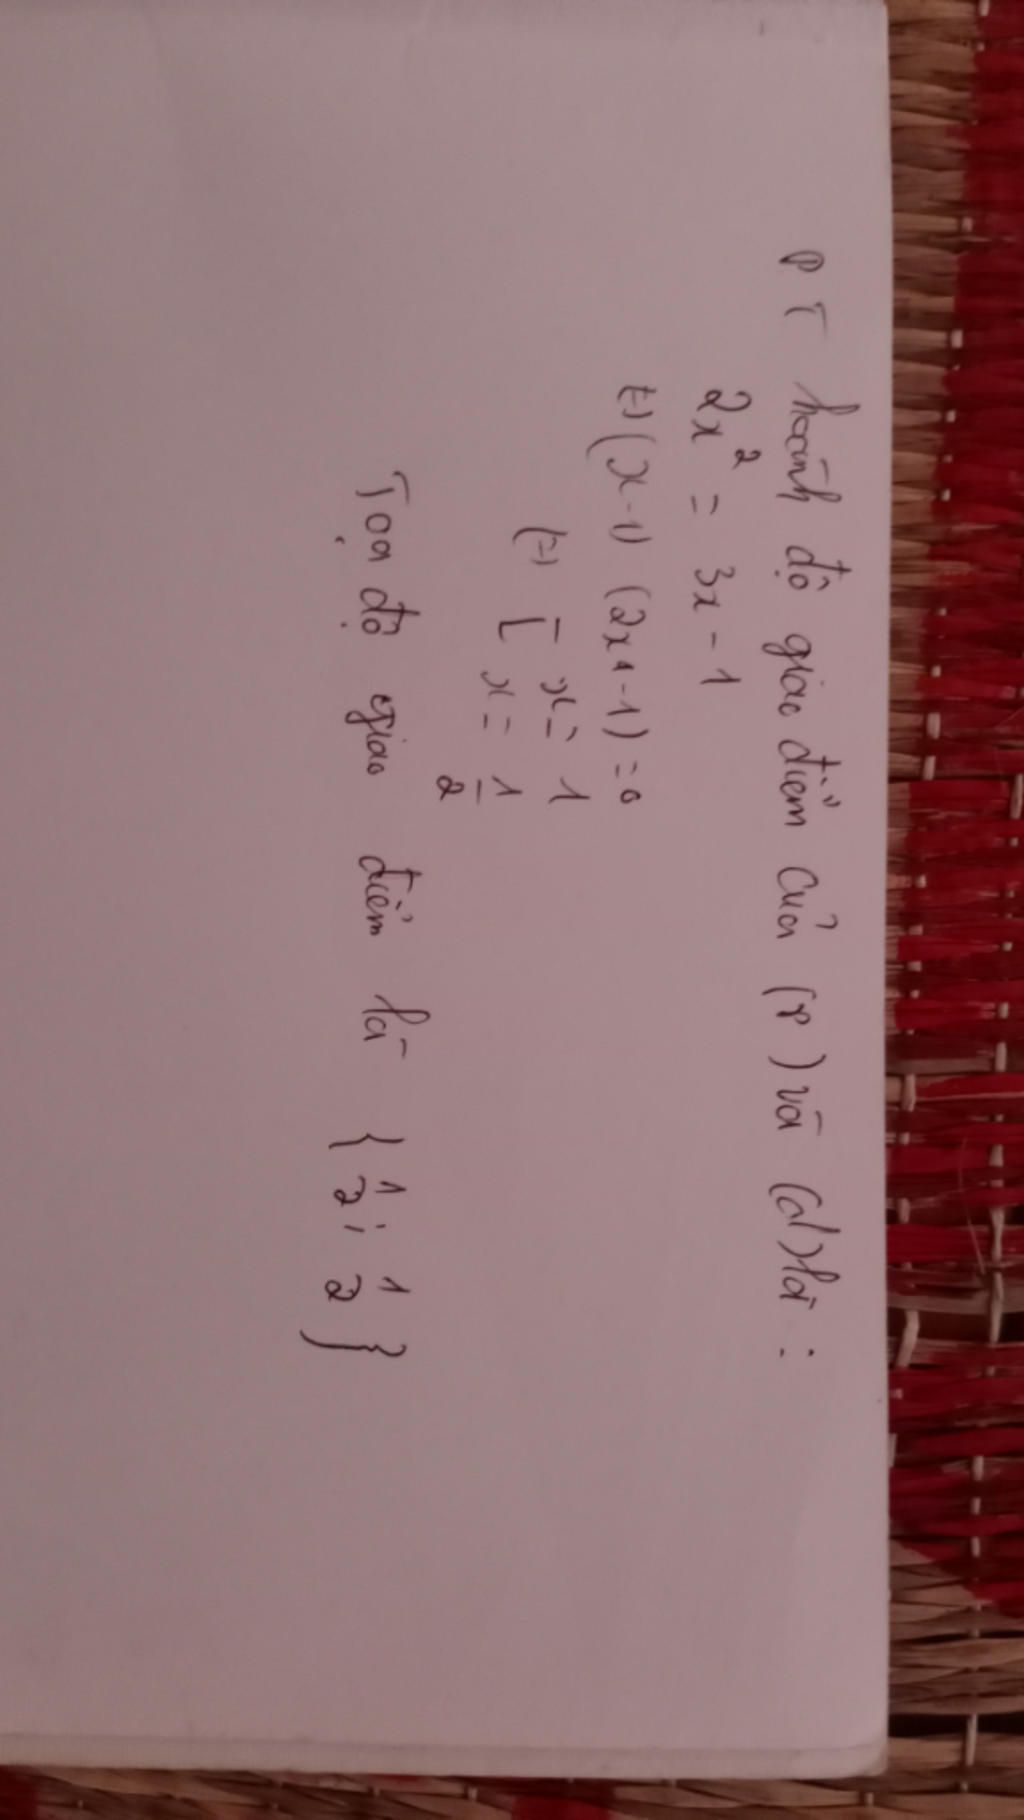 PT hoành độ giao điểm của (P) và (d) là :
2x² = 3x - 1
(=) (x-1) (2x-1) = 0
(=) [ x = 1
x = 1/2
Tọa độ giao điểm là { 1/2 ; 1/2 }